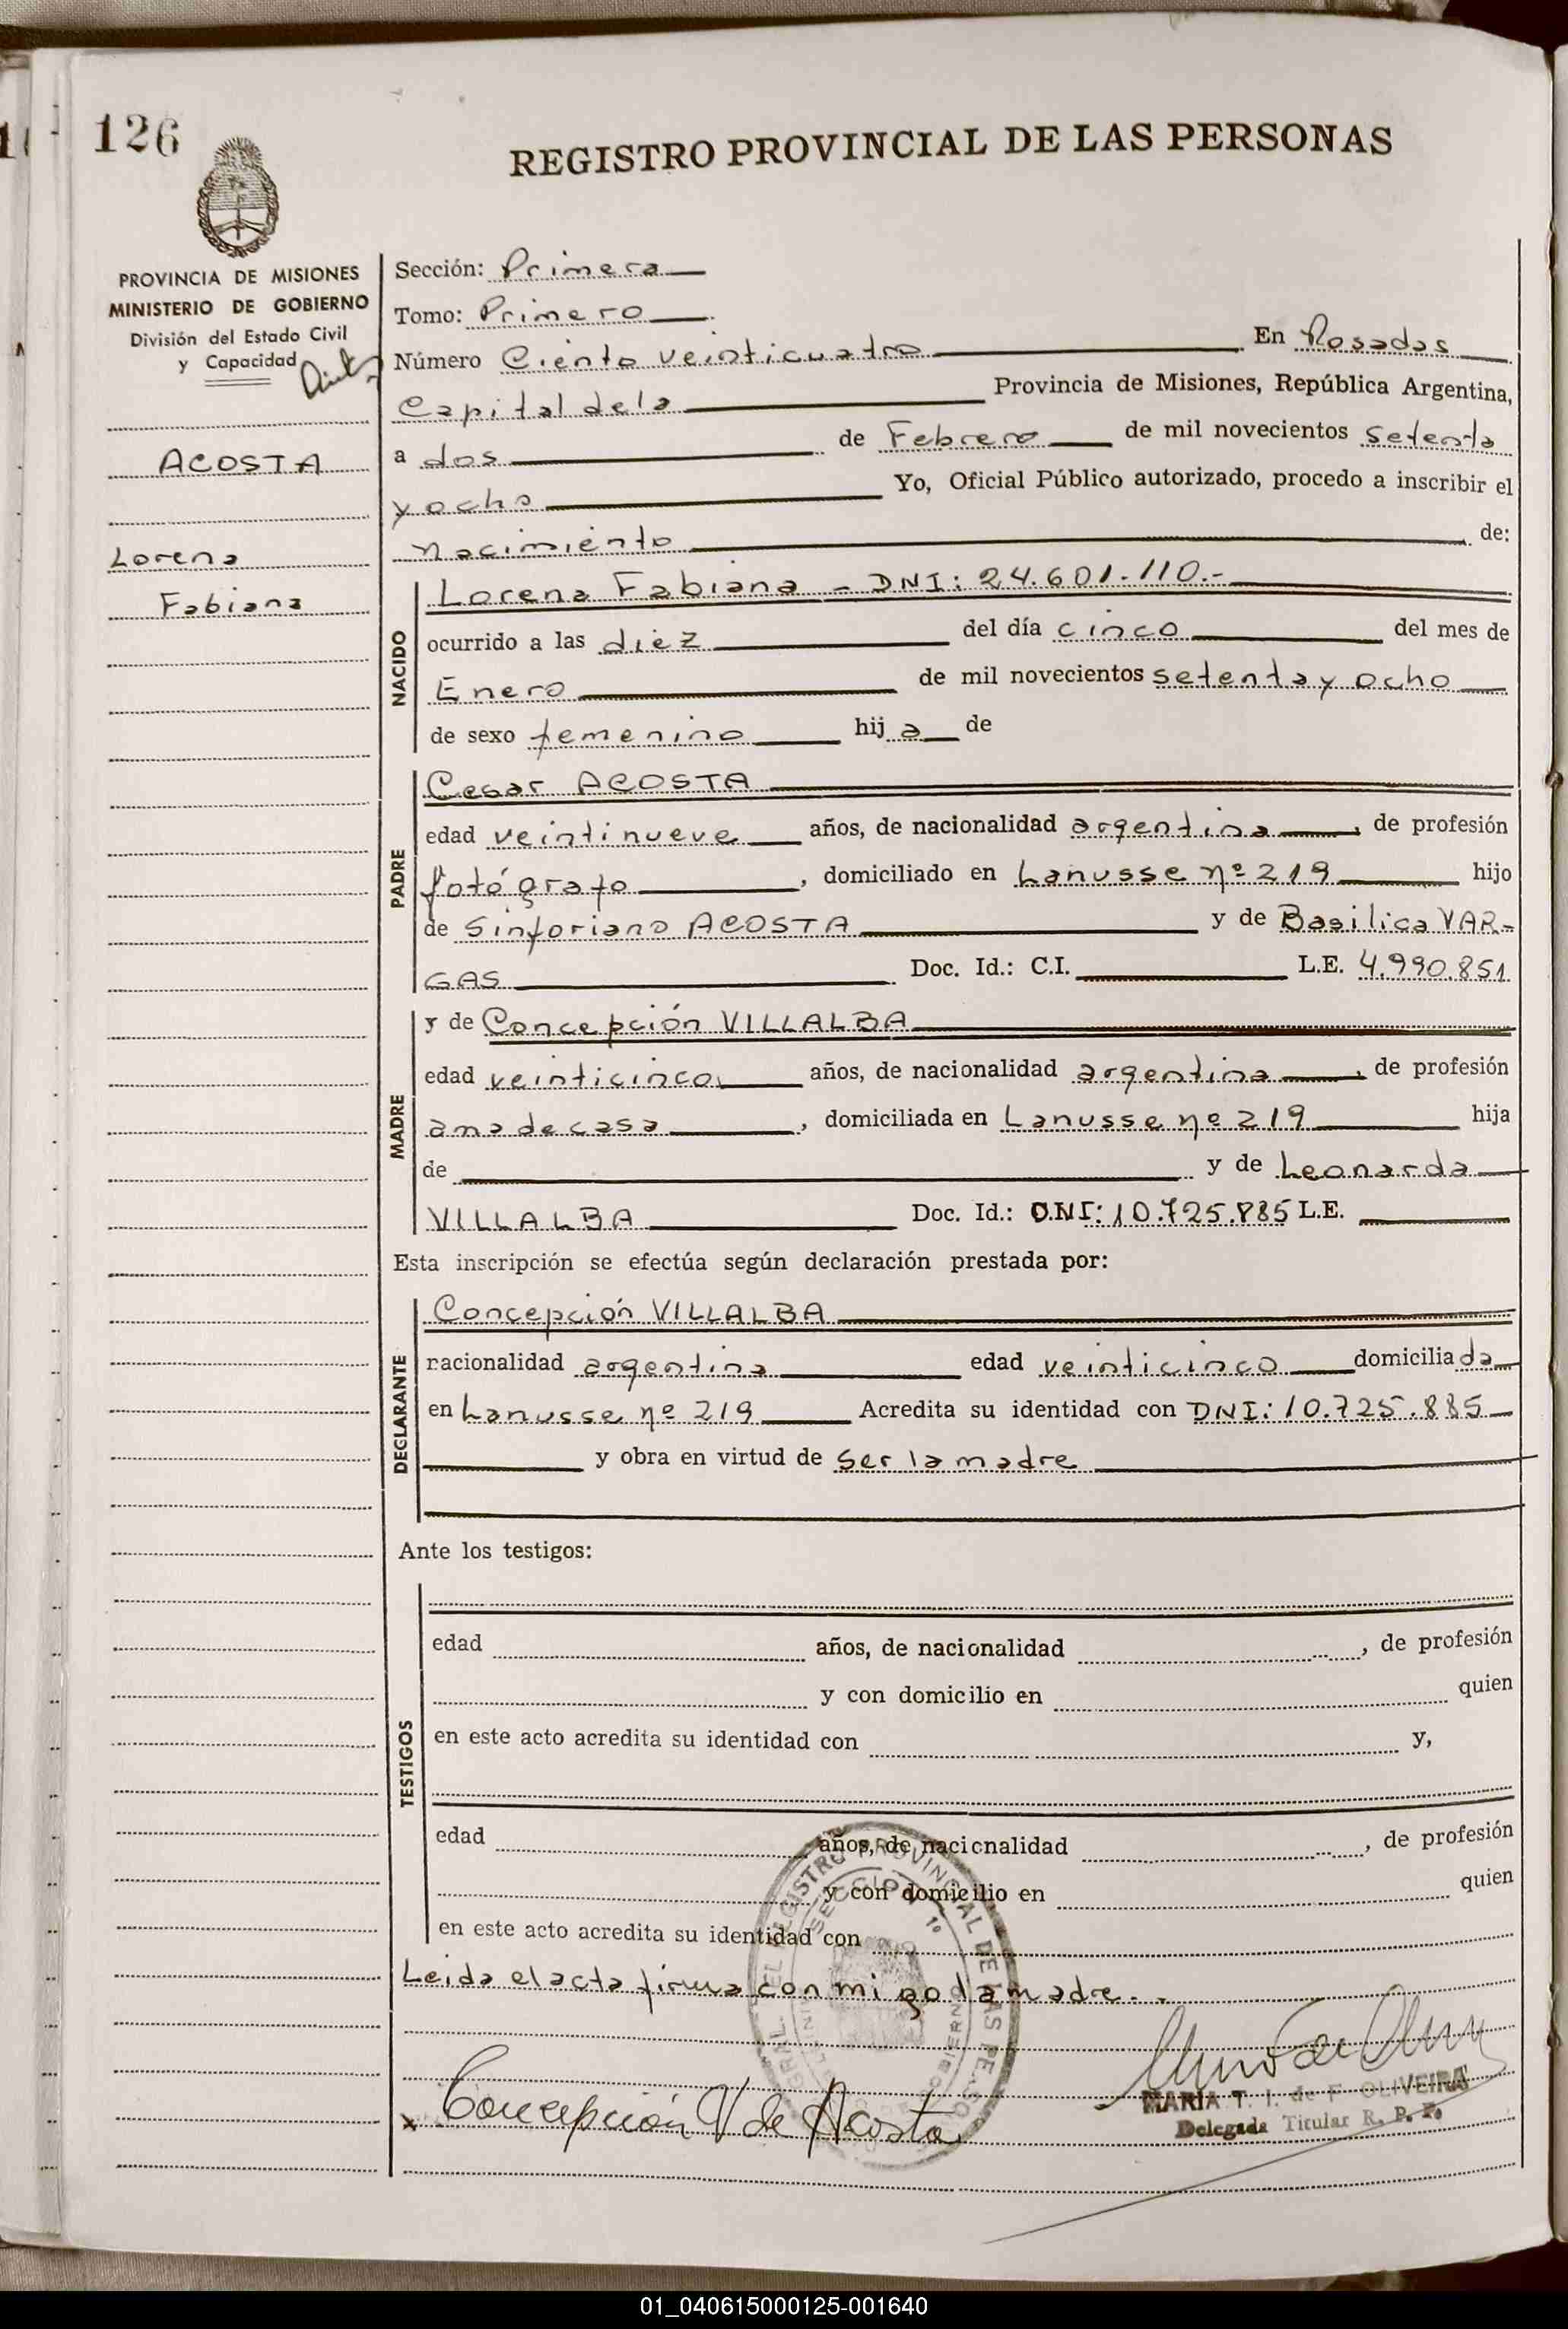 126
REGISTRO PROVINCIAL DE LAS PERSONAS
PROVINCIA DE MISIONES
MINISTERIO DE GOBIERNO
División del Estado Civil
y Capacidad
ACOSTA
Lorena
Fabiana
Sección: Primera
Tomo: Primero
Número Ciento veinticuatro En Posadas
Capital de la Provincia de Misiones, República Argentina,
a dos de Febrero de mil novecientos setenta
y ocho Yo, Oficial Público autorizado, procedo a inscribir el
nacimiento de:
NACIDO
Lorena Fabiana - DNI: 24.601.110.-
ocurrido a las diez del día cinco del mes de
Enero de mil novecientos setenta y ocho
de sexo femenino hija de
PADRE
Cesar ACOSTA
edad veintinueve años, de nacionalidad argentina, de profesión
fotógrafo, domiciliado en Lanusse nº 219 hijo
de Sinforiano ACOSTA y de Basilica VAR-
GAS Doc. Id.: C.I. L.E. 4.990.851
MADRE
y de Concepción VILLALBA
edad veinticinco años, de nacionalidad argentina, de profesión
ama de casa, domiciliada en Lanusse nº 219 hija
de y de Leonarda
VILLALBA Doc. Id.: D.N.I: 10.725.885 L.E.
Esta inscripción se efectúa según declaración prestada por:
DECLARANTE
Concepción VILLALBA
racionalidad argentina edad veinticinco domiciliada
en Lanusse nº 219 Acredita su identidad con DNI: 10.725.885
y obra en virtud de ser la madre
Ante los testigos:
TESTIGOS
edad años, de nacionalidad , de profesión
y con domicilio en quien
en este acto acredita su identidad con y,
edad años, de nacicnalidad , de profesión
y con domicilio en quien
en este acto acredita su identidad con
Leida el acta firma conmigo la madre.-
Concepción V de Acosta
MARIA T. I. de F. OLIVEIRA
Delegada Titular R. P. P.
SECCION 1º
01_040615000125-001640